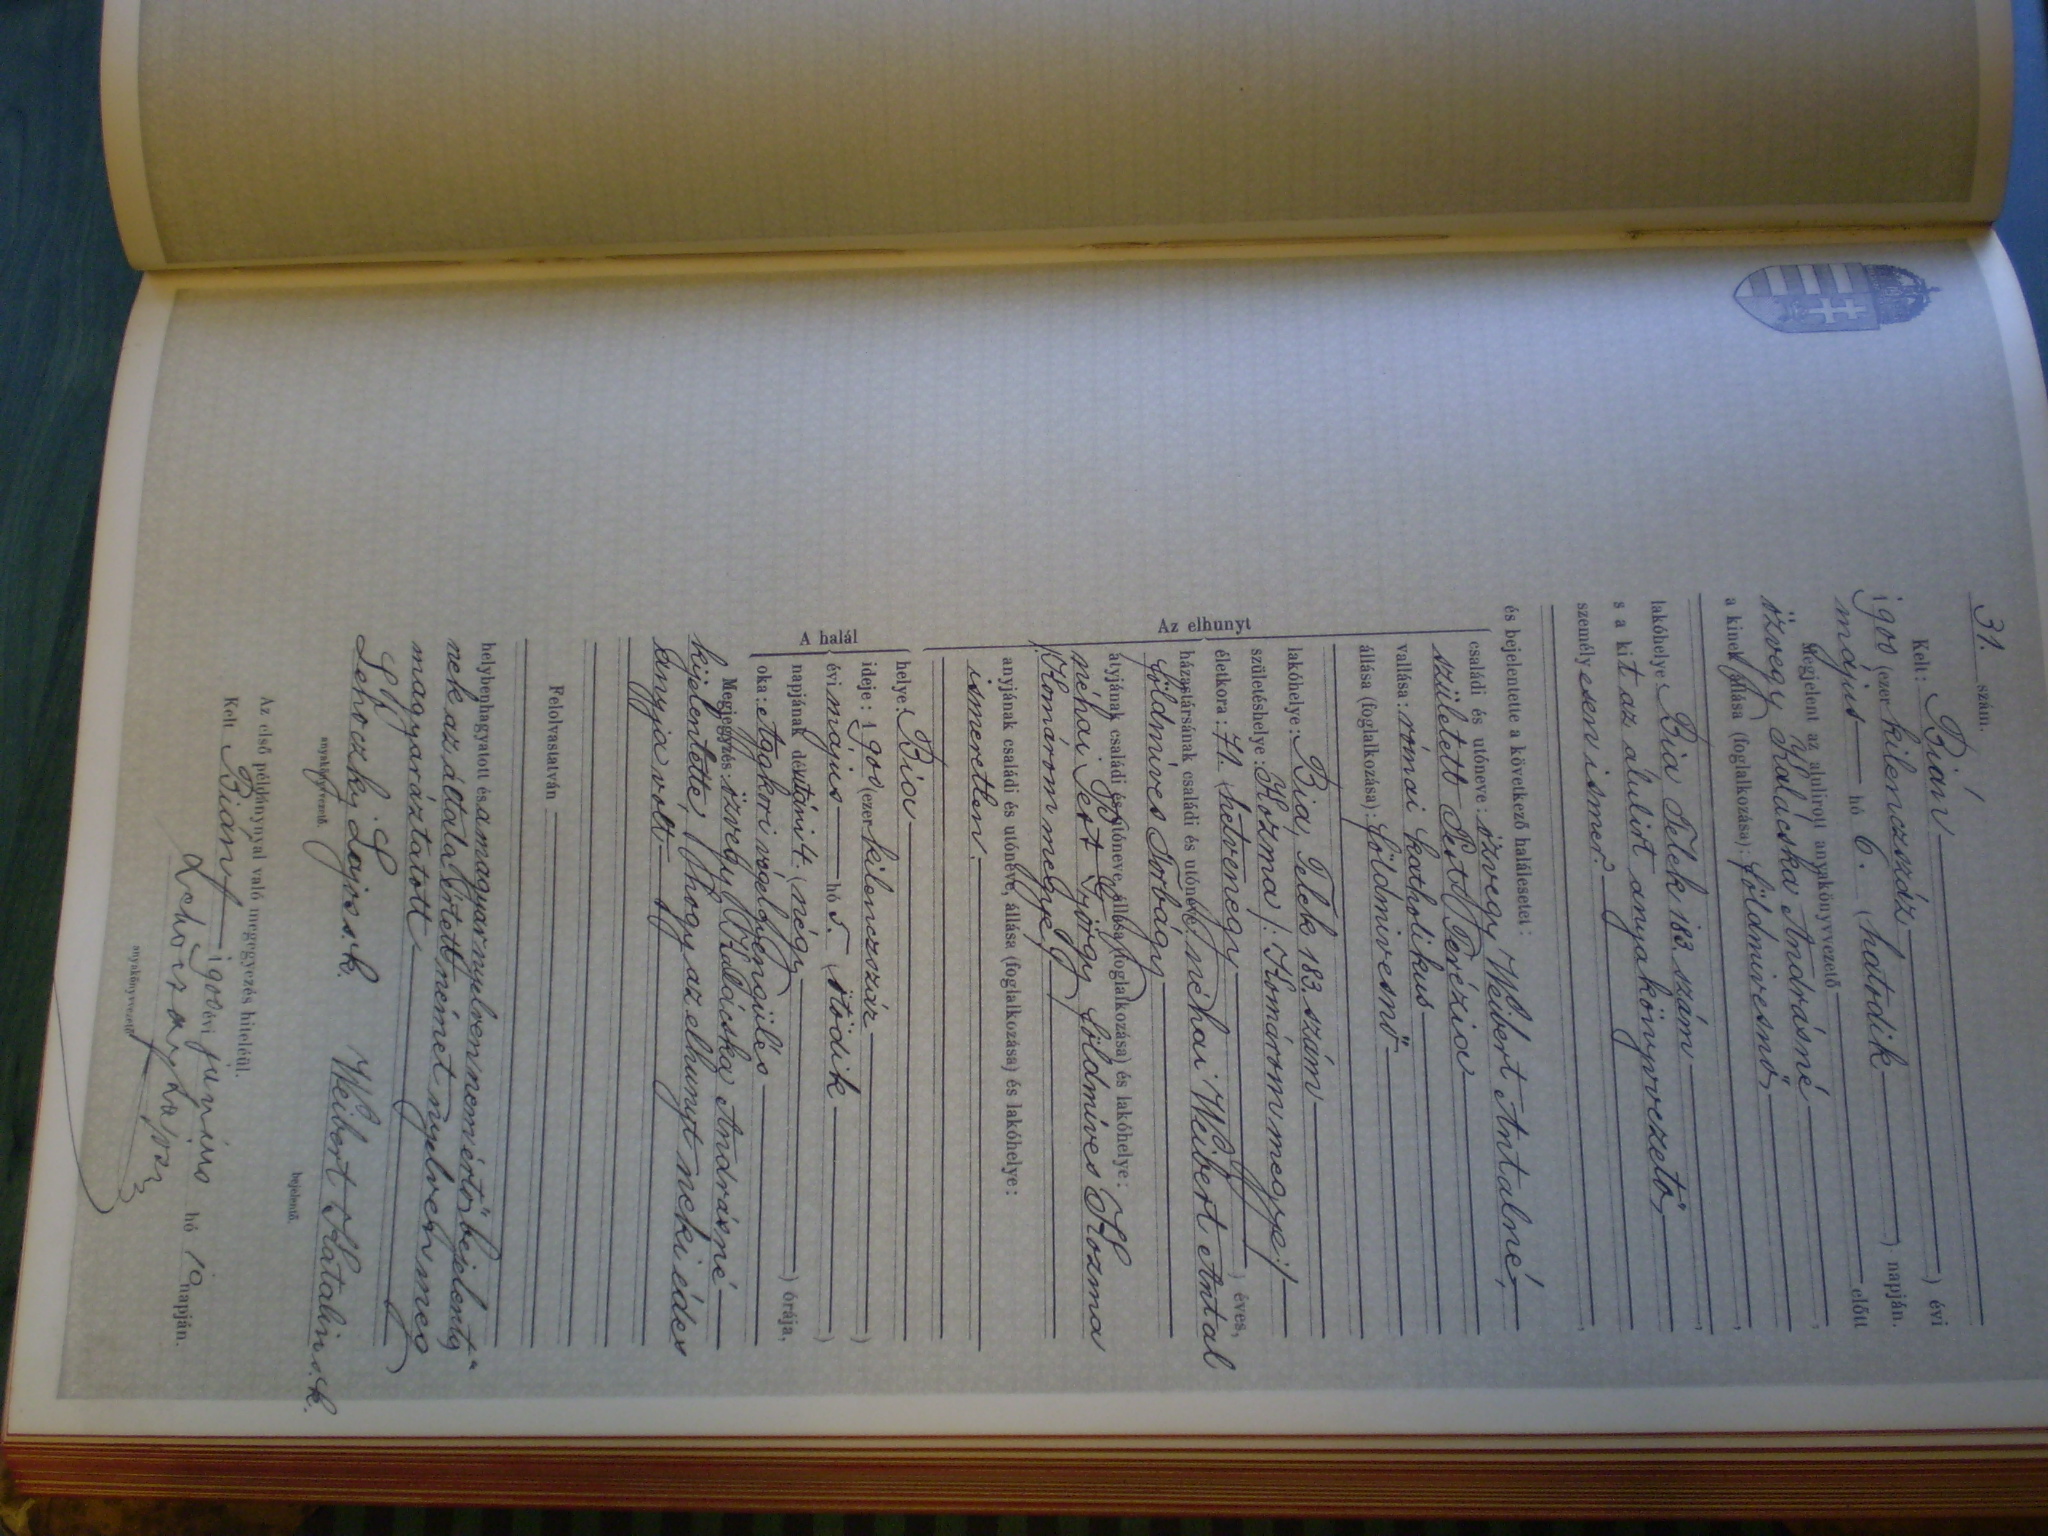 31. szám.
Kelt: Bián
1900 (ezer kilenczszáz ) évi
május hó 6. (hatodik ) napján.
Megjelent az alulirott anyakönyvvezető előtt
özvegy Kalácska Andrásné,
a kinek állása (foglalkozása): földmivesnő,
lakóhelye: Bia Telek 183 szám,
s a kit az álulirt anyakönyvvezető
személyesen ismer.
és bejelentette a következő halálesetet:
Az elhunyt
családi és utóneve: özvegy Weibert Antalné,
született Pert Terézia
vallása: római katholikus
állása (foglalkozása): földmivesnő
lakóhelye: Bia, Telek 183. szám
születéshelye: Kozma /: Komárom megye :/
életkora: 71. (hetvenegy ) éves,
házastársának családi és utóneve: néhai Weibert Antal
földmíves Torbágy
átyjának családi és utóneve, állása (foglalkozása) és lakóhelye:
néhai Pert György földmíves Kozma
(Komárom megye)
anyjának családi és utóneve, állása (foglalkozása) és lakóhelye:
ismeretlen.
A halál
helye: Bia
ideje: 1900 (ezer kilenczszáz )
évi május hó 5. (ötödik )
napjának délutánit. (négy ) órája,
oka: Aggkori végelgyengülés
Megjegyzés: özvegy Kalácska Andrásné
kijelentette, hogy az elhunyt neki édes
anyja volt
Felolvastatván
helybenhagyatott és a magyar nyelven nem értő bejelentő-
nek az általa értett német nyelven meg
magyaráztatott
Lehoczky Lajos s.k. Weibert Katalin s.k.
anyakönyvvezető. bejelentő.
Az első példánynyal való megegyezés hiteléül.
Kelt Bián 1900 évi június hó 10 napján.
Lehoczky Lajos
anyakönyvvezető